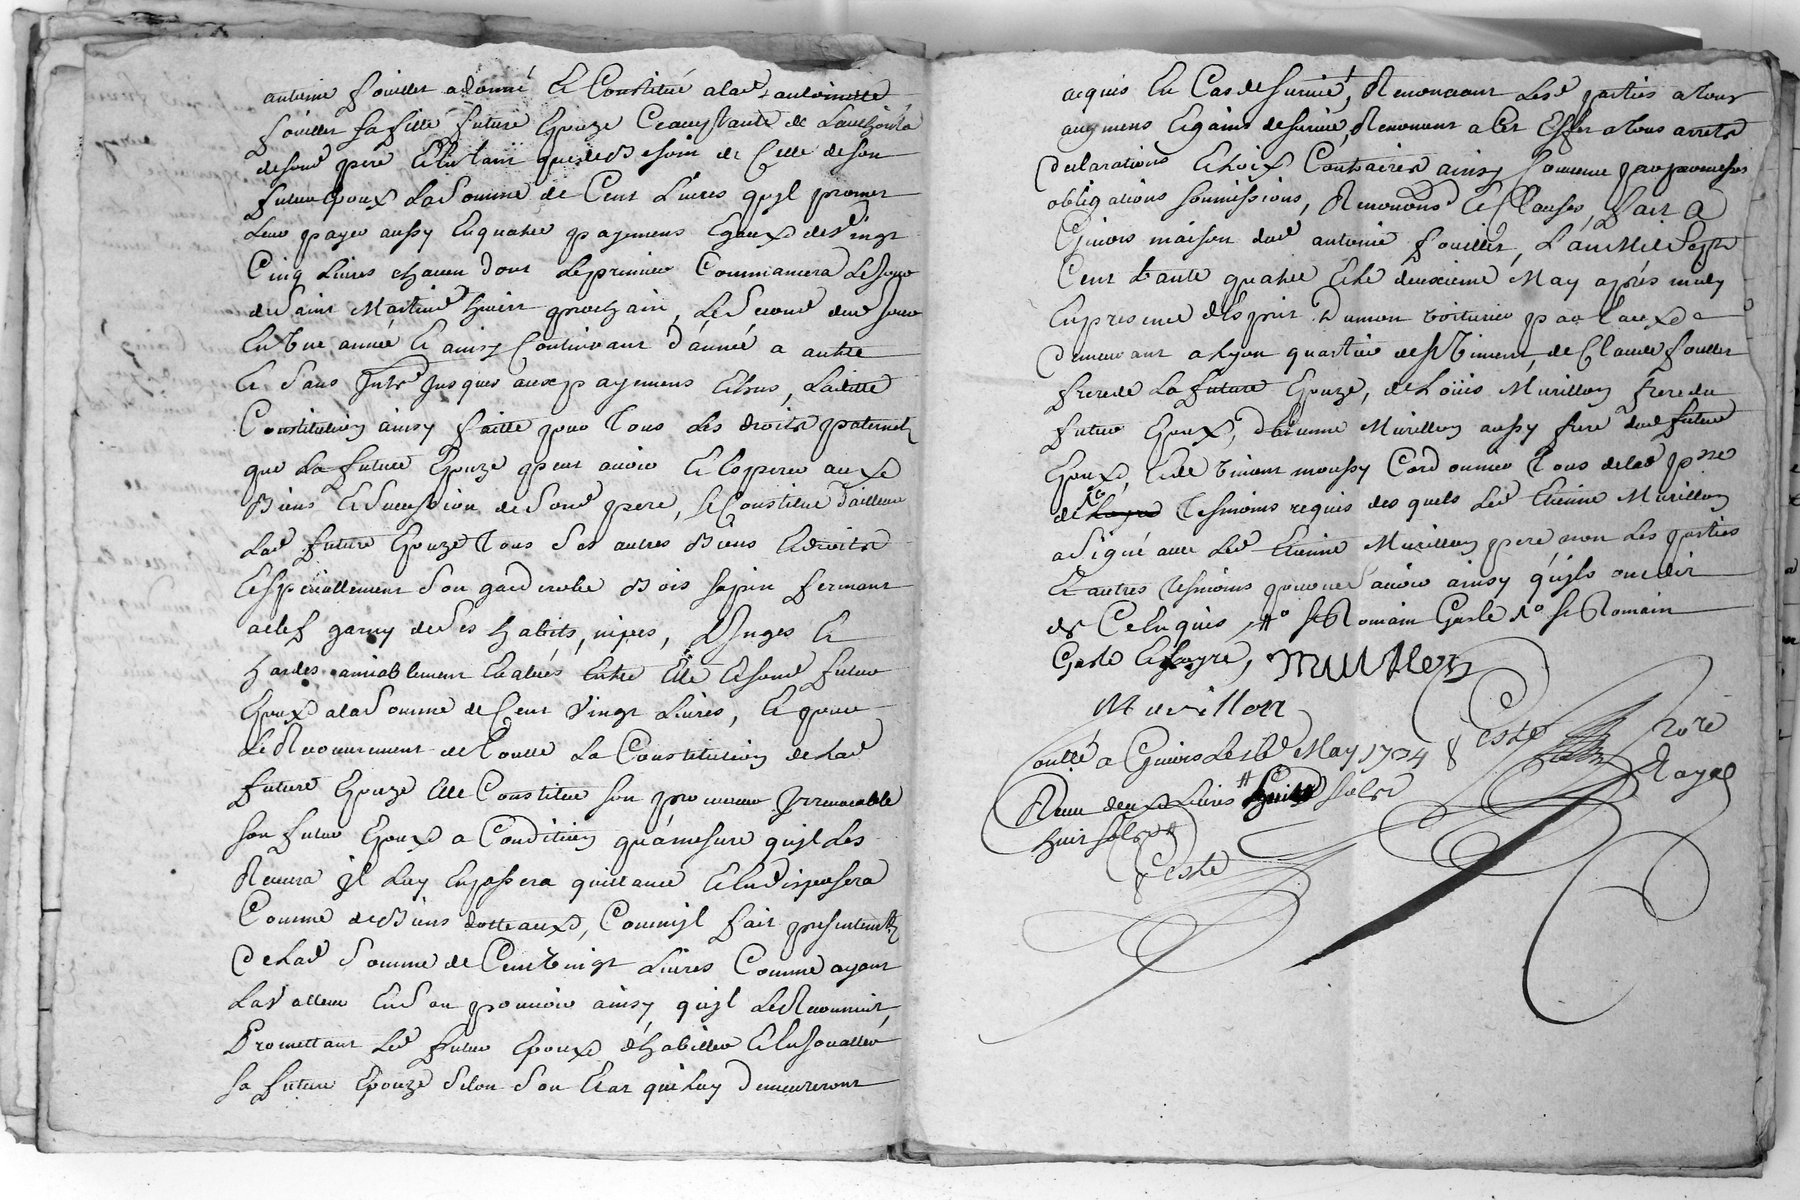 antoine fouiller a donné Et Constitué a lad antoinette
fouiller sa fille future Epouze Ceacceptante de Lauthorité
desond pere Et En tant que de Besoin de Celle de son
futur Epoux La Somme de Cent Livres qu'jl promet
Leur payer aussy En quatre payemens Egaux de Vingt
Cinq Livres chacun dont Le premier Commancera Le Jour
de Saint Martin d'huier prochain, Le Second aud Jour
En Une année Et ainsy Continuant d'année a autre
Et Sans Jntr Jusques aux payemens Echus, Laditte
Constitution ainsy faitte pour Tous Les droits paternels
que La future Epouze peut avoir Et Esperer aux
Biens Et Succession de Sond pere, se Constitue d'ailleurs
Lad future Epouze Tous Ses autres Biens Et droits
Et Speciallement Son garderobe Bois Sapin fermant
a clef garny de Ses habits, nipes, Linges Et
hardes amiablement Evalués Entre Elle Et sond futur
Epoux a la Somme de Cent Vingt Livres, Et pour
Le Recouvrement de Toutte La Constitution de Lad
future Epouze Elle Constitue son procureur Jrrevocable
son futur Epoux a Condition qu'a mesure qu'jl Les
Recevra jl Luy En passera quittance Et En disposera
Comme de Biens dotteaux, Comm'jl fait presentemt
De Lad Somme de Cent Vingt Livres Comme ayant
La Valleur En Son pouvoir ainsy qu'jl Le Reconnoit,
Promettant Led futur Epoux d'habiller Et En Joualler
sa future Epouze Selon Son Etat qui Luy demeureront
acquis En Cas de Survie, Renonceant Lesd parties a tous
augmens Et gains de survie, Renoncent a Cet Effet a tous arrets
Declarations Et Loix Contraires ainsy Comme par promesses
obligations soumissions, Renonons Et Clauses, fait a
Givors maison dud antoine fouiller, L'an Mil Sept
Cent trante quatre Et Le deuxieme May aprés midy
En presence d'Esprit Dumon voiturier par Eaux
Demeurant a Lyon quartier de St Vincent, de Claude fouiller
frere de La future Epouze, de Loüis Murillon frere du
futur Epoux, d'Etienne Murillon aussy frere dud futur
Epoux, Et de Vincent moussy Cordonnier Tous de lad psse
de Tesmoins requis des quels Led Etienne Murillon
a Signé avec Led Etienne Murillon pere non Les parties
Et autres Tesmoins pour ne Scavoir ainsy qu'jls ont dit
de Ce Enquis, St Romain Gaste St Romain
Gaste Et Layre, Murillon
Murillon
Conllé a Givors Le May 1734
Receu deux Livres sols
huit sols
Ceste
Ceste
Nore
Royal